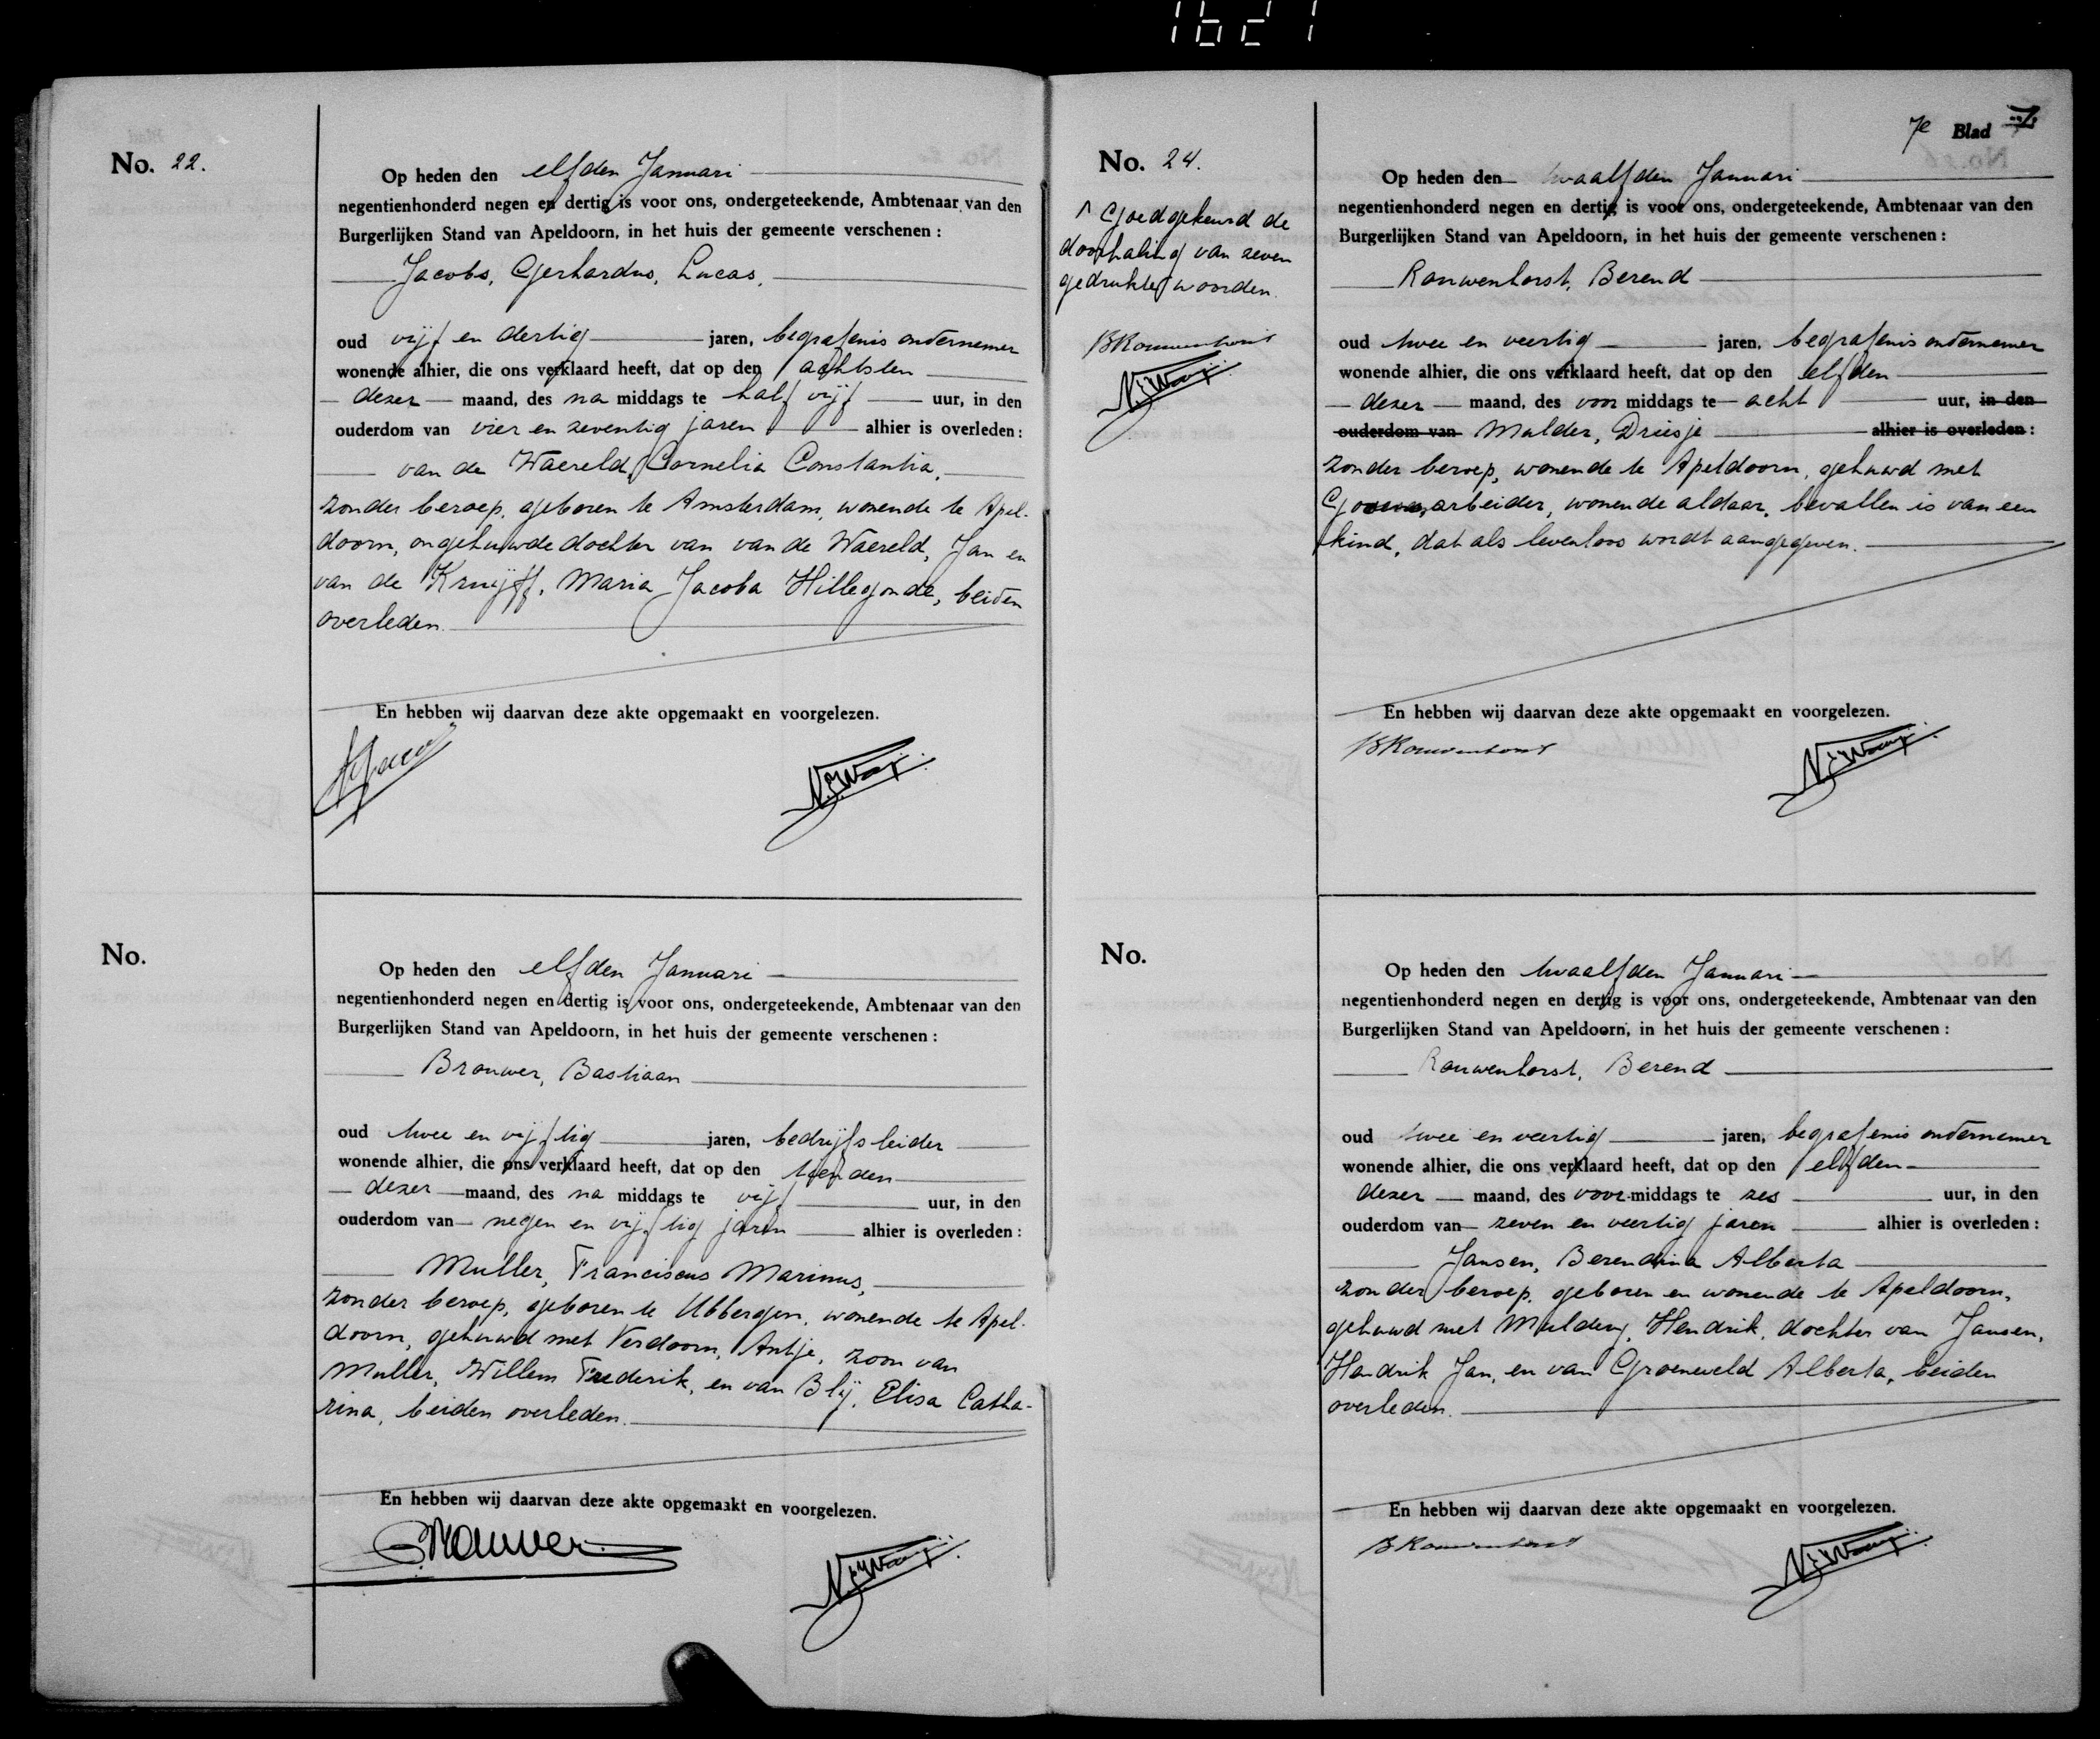 1621
No. 22.
Op heden den elfden Januari
negentienhonderd negen en dertig is voor ons, ondergeteekende, Ambtenaar van den
Burgerlijken Stand van Apeldoorn, in het huis der gemeente verschenen:
Jacobs, Gerhardus, Lucas,
oud vijf en dertig jaren, begrafenis ondernemer
wonende alhier, die ons verklaard heeft, dat op den achtsten
dezer maand, des na middags te half vijf uur, in den
ouderdom van vier en zeventig jaren alhier is overleden:
van de Waereld, Cornelia Constantia,
zonder beroep, geboren te Amsterdam, wonende te Apel-
doorn, ongehuwde dochter van van de Waereld, Jan en
van de Kruijff, Maria Jacoba Hillegonde, beiden
overleden.
En hebben wij daarvan deze akte opgemaakt en voorgelezen.
No.
Op heden den elfden Januari
negentienhonderd negen en dertig is voor ons, ondergeteekende, Ambtenaar van den
Burgerlijken Stand van Apeldoorn, in het huis der gemeente verschenen:
Brouwer, Bastiaan
oud twee en vijftig jaren, bedrijfsleider
wonende alhier, die ons verklaard heeft, dat op den tienden
dezer maand, des na middags te vijf uur, in den
ouderdom van negen en vijftig jaren alhier is overleden:
Muller, Franciscus Marinus,
zonder beroep, geboren te Ubbergen, wonende te Apel-
doorn, gehuwd met Verdoorn, Antje, zoon van
Muller, Willem Frederik, en van Blij, Elisa Catha-
rina, beiden overleden.
En hebben wij daarvan deze akte opgemaakt en voorgelezen.
Brouwer
7e Blad 7
No. 24.
Goedgekeurd de
doorhaling van zeven
gedrukte woorden.
BRouwenhorst
Op heden den twaalfden Januari
negentienhonderd negen en dertig is voor ons, ondergeteekende, Ambtenaar van den
Burgerlijken Stand van Apeldoorn, in het huis der gemeente verschenen:
Rouwenhorst, Berend
oud twee en veertig jaren, begrafenis ondernemer
wonende alhier, die ons verklaard heeft, dat op den elfden
dezer maand, des voor middags te acht uur, in den
ouderdom van Mulder, Driesje alhier is overleden:
zonder beroep, wonende te Apeldoorn, gehuwd met
arbeider, wonende aldaar, bevallen is van een
kind, dat als levenloos wordt aangegeven.
En hebben wij daarvan deze akte opgemaakt en voorgelezen.
BRouwenhorst
No.
Op heden den twaalfden Januari
negentienhonderd negen en dertig is voor ons, ondergeteekende, Ambtenaar van den
Burgerlijken Stand van Apeldoorn, in het huis der gemeente verschenen:
Rouwenhorst, Berend
oud twee en veertig jaren, begrafenis ondernemer
wonende alhier, die ons verklaard heeft, dat op den elfden
dezer maand, des voor middags te zes uur, in den
ouderdom van zeven en veertig jaren alhier is overleden:
Jansen, Berendina Alberta
zonder beroep, geboren en wonende te Apeldoorn,
gehuwd met Mulderij, Hendrik, dochter van Jansen,
Hendrik Jan, en van Groeneveld Alberta, beiden
overleden.
En hebben wij daarvan deze akte opgemaakt en voorgelezen.
BRouwenhorst